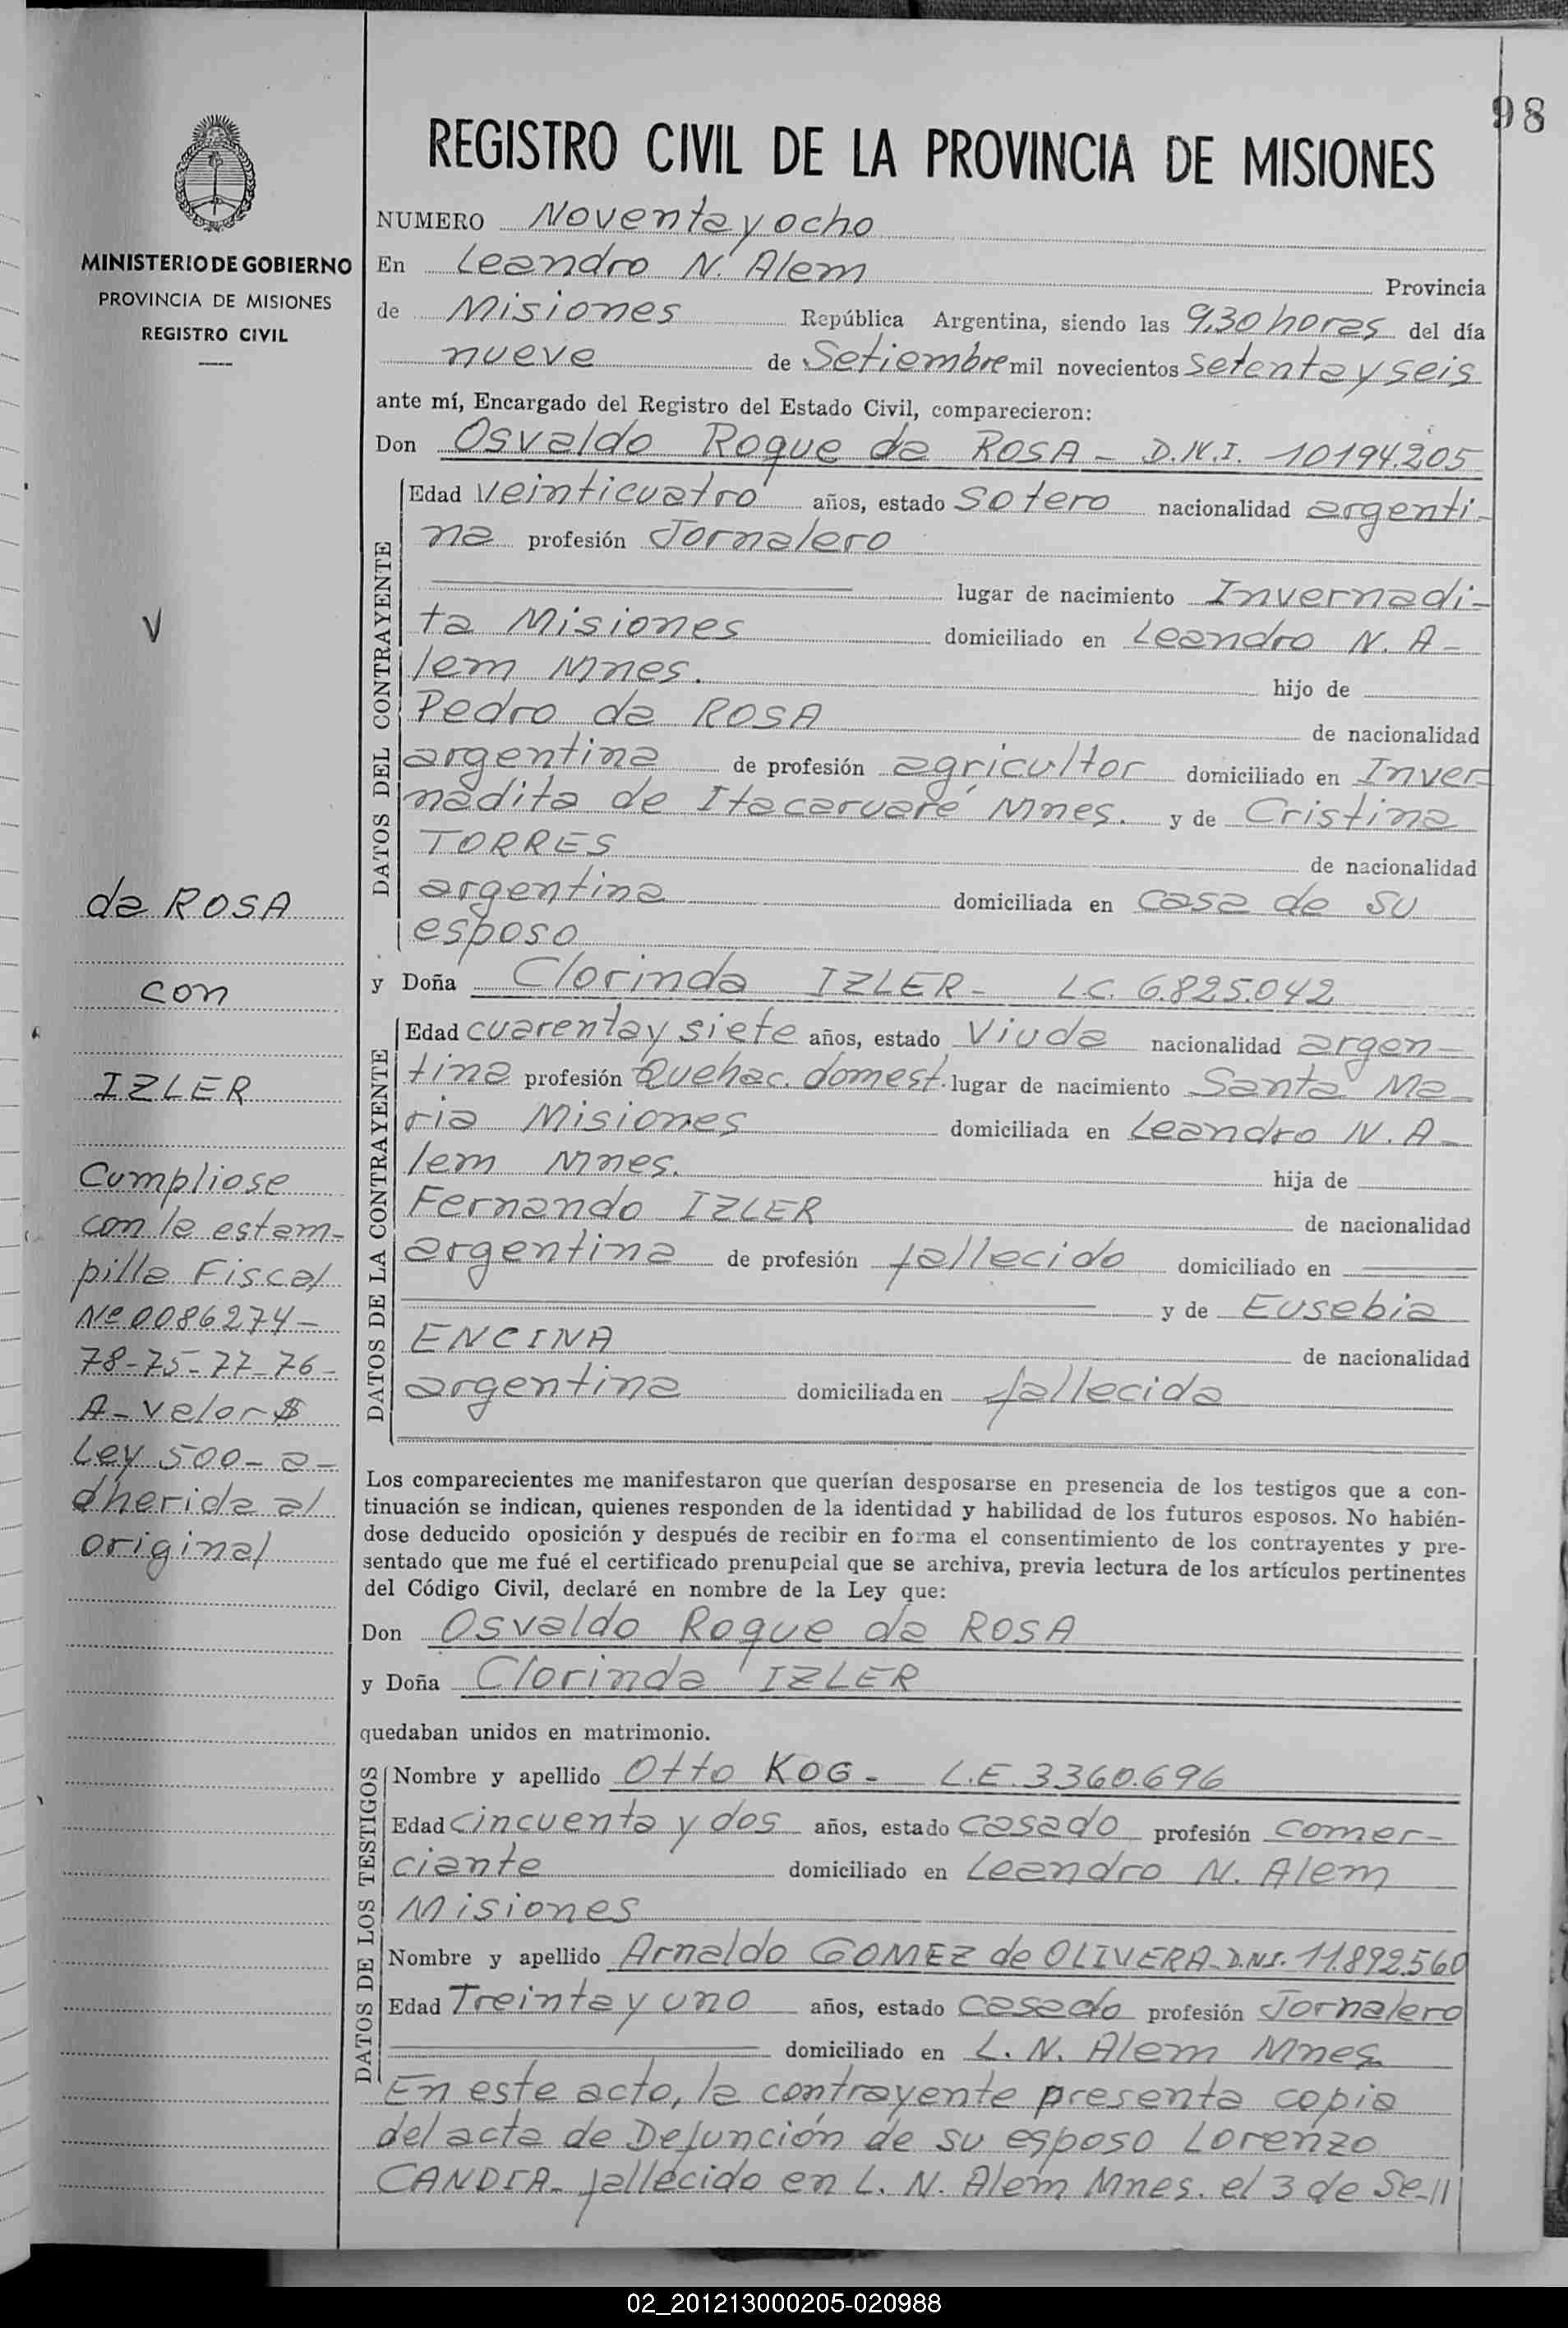 98
REGISTRO CIVIL DE LA PROVINCIA DE MISIONES
MINISTERIO DE GOBIERNO
PROVINCIA DE MISIONES
REGISTRO CIVIL
V
da ROSA
con
IZLER
Cumpliose
con la estam-
pilla Fiscal
Nº 0086274-
78-75-77-76-
A-valor $
Ley 500- a-
dherida al
original
NUMERO Noventa y ocho
En Leandro N. Alem Provincia
de Misiones República Argentina, siendo las 9,30 horas del día
nueve de Setiembre mil novecientos setenta y seis
ante mí, Encargado del Registro del Estado Civil, comparecieron:
Don Osvaldo Roque da ROSA - D.N.I. 10194.205
DATOS DEL CONTRAYENTE
Edad veinticuatro años, estado sotero nacionalidad argenti-
na profesión Jornalero
lugar de nacimiento Invernadi-
ta Misiones domiciliado en Leandro N. A-
lem Mnes. hijo de
Pedro da ROSA de nacionalidad
argentina de profesión agricultor domiciliado en Inver-
nadita de Itacaruaré Mnes. y de Cristina
TORRES de nacionalidad
argentina domiciliada en casa de su
esposo
y Doña Clorinda IZLER- LC. 6.825.042
DATOS DE LA CONTRAYENTE
Edad cuarenta y siete años, estado Viuda nacionalidad argen-
tina profesión Quehac. domest. lugar de nacimiento Santa Ma-
ria Misiones domiciliada en Leandro N. A-
lem Mnes. hija de
Fernando IZLER de nacionalidad
argentina de profesión fallecido domiciliado en
y de Eusebia
ENCINA de nacionalidad
argentina domiciliada en fallecida
Los comparecientes me manifestaron que querían desposarse en presencia de los testigos que a con-
tinuación se indican, quienes responden de la identidad y habilidad de los futuros esposos. No habién-
dose deducido oposición y después de recibir en forma el consentimiento de los contrayentes y pre-
sentado que me fué el certificado prenupcial que se archiva, previa lectura de los artículos pertinentes
del Código Civil, declaré en nombre de la Ley que:
Don Osvaldo Roque da ROSA
y Doña Clorinda IZLER
quedaban unidos en matrimonio.
DATOS DE LOS TESTIGOS
Nombre y apellido Otto KOG- L.E. 3360.696
Edad cincuenta y dos años, estado casado profesión comer-
ciante domiciliado en Leandro N. Alem
Misiones
Nombre y apellido Arnaldo GOMEZ de OLIVERA-D.N.I. 11.892.560
Edad Treinta y uno años, estado casado profesión Jornalero
domiciliado en L. N. Alem Mnes.
En este acto, la contrayente presenta copia
del acta de Defunción de su esposo Lorenzo
CANDIA- fallecido en L. N. Alem Mnes. el 3 de Se-//
02_201213000205-020988